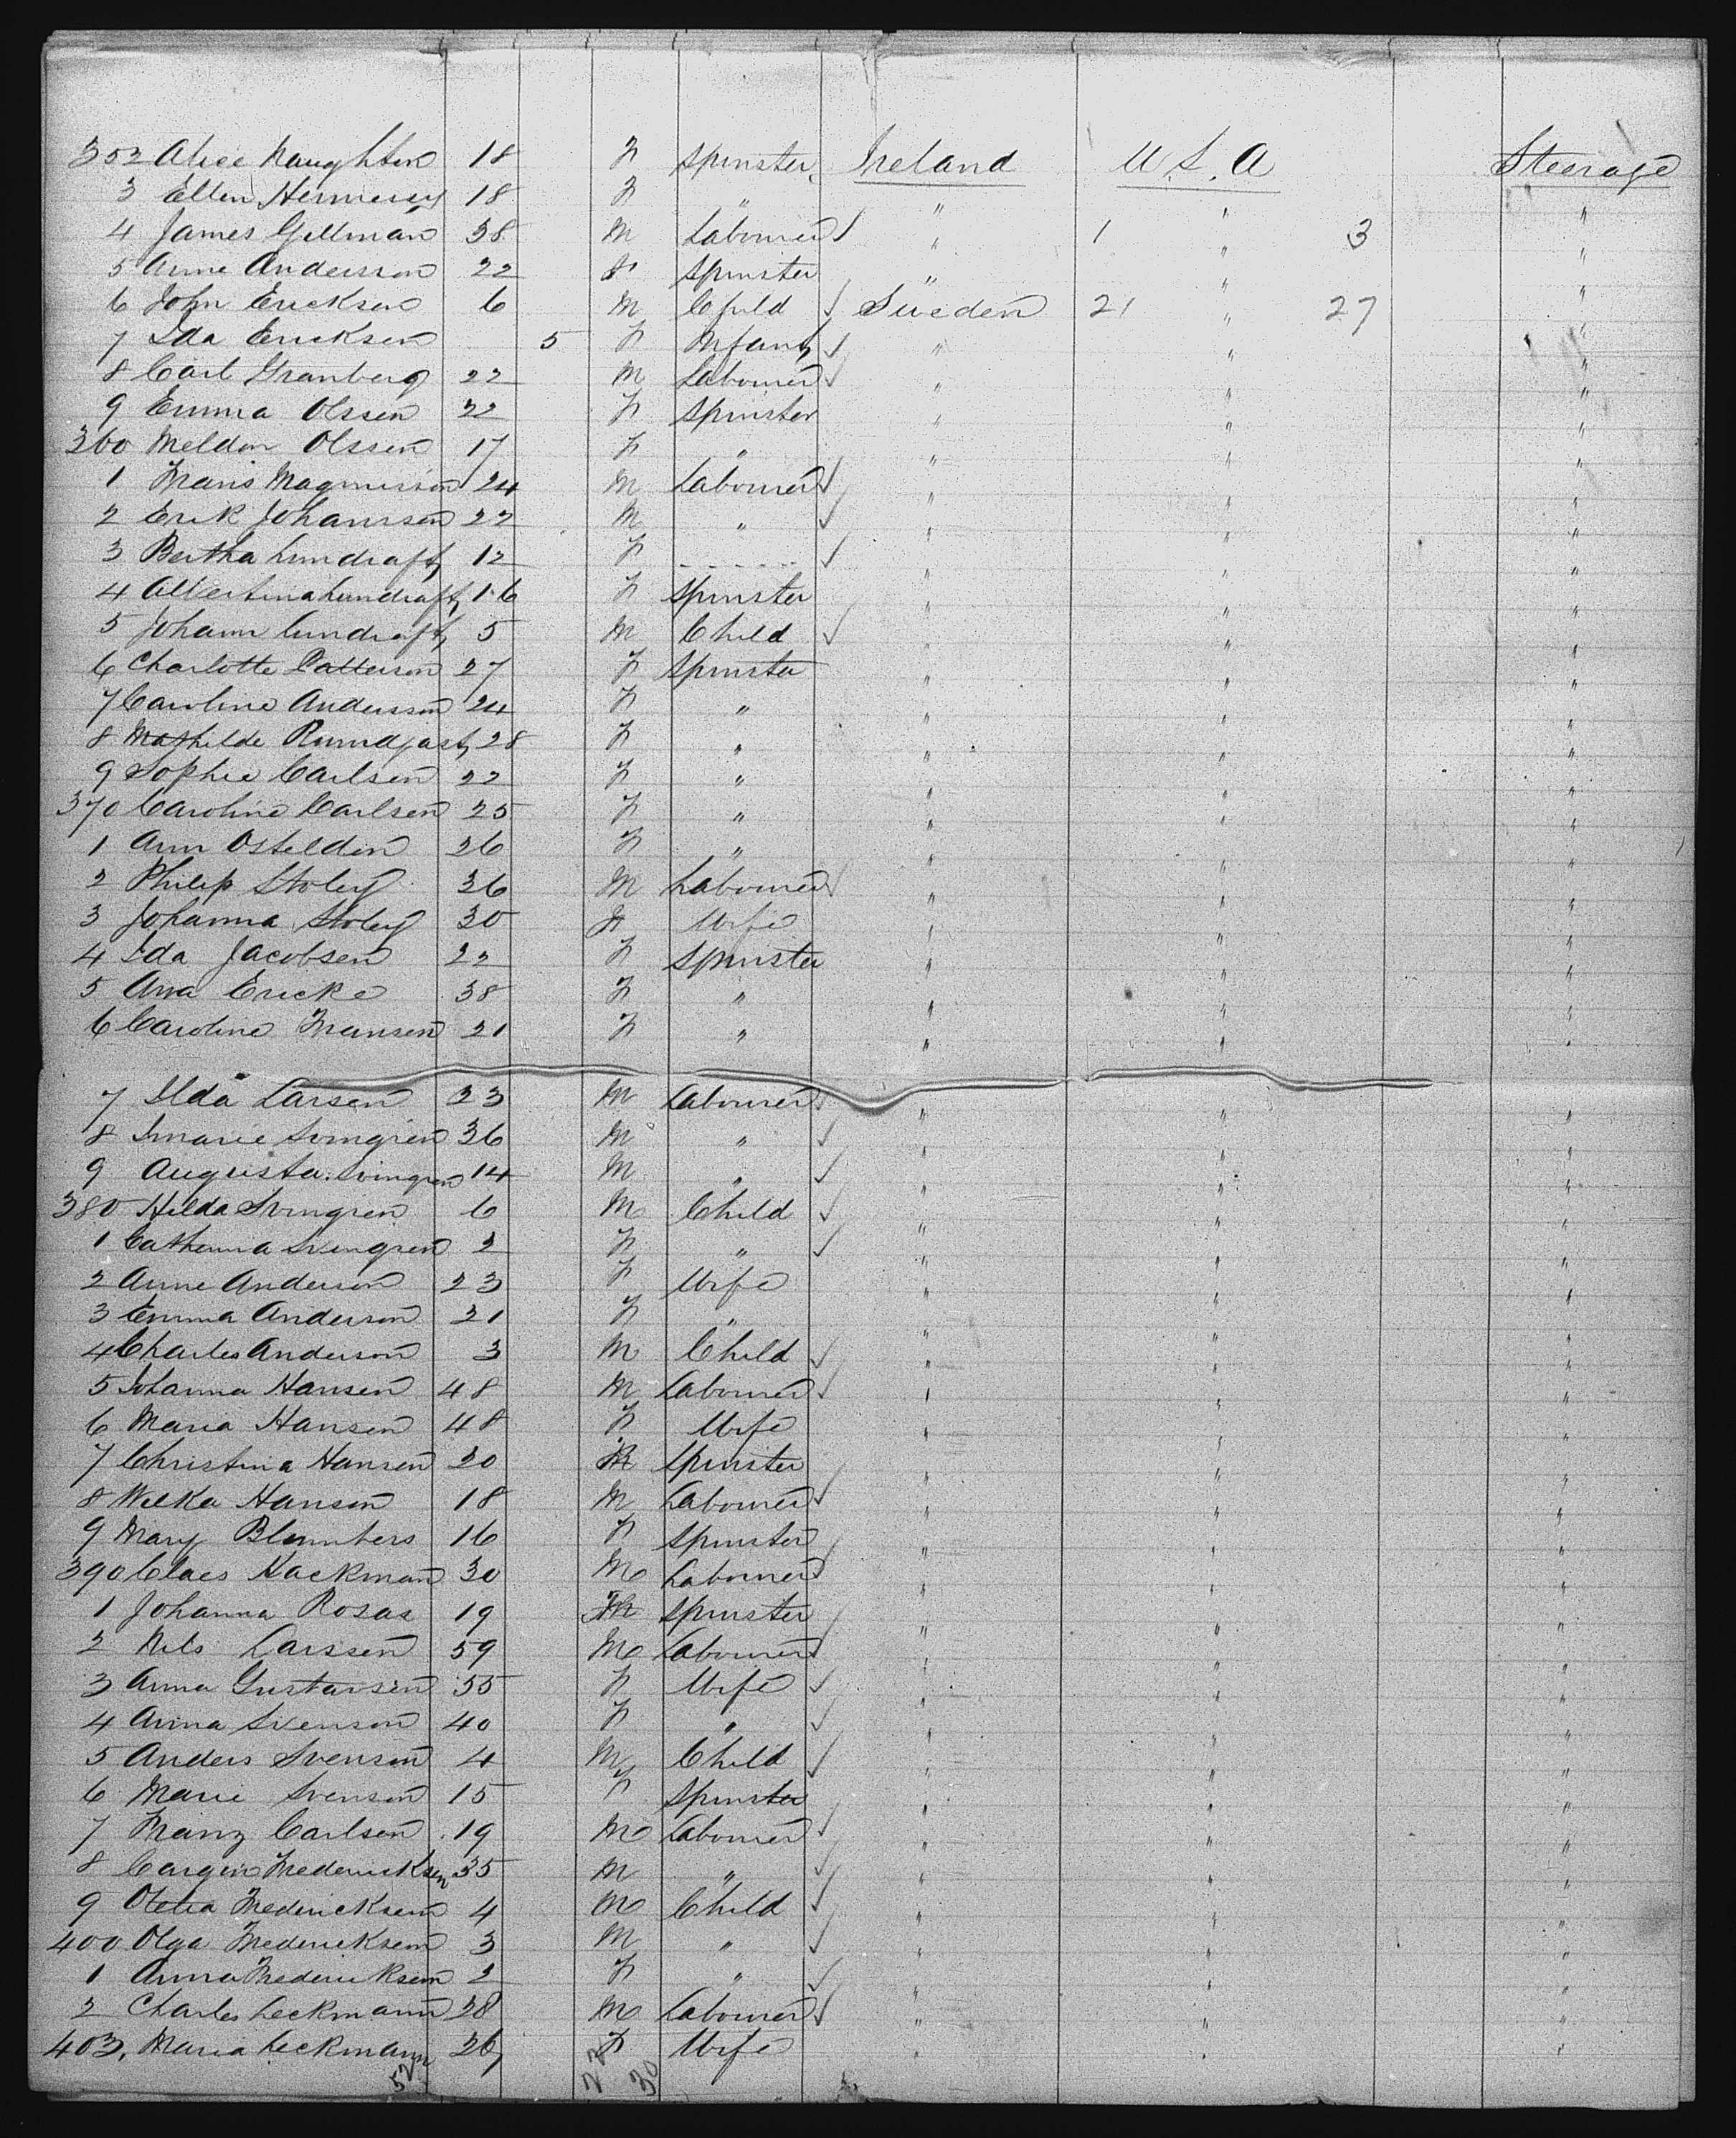 352 Alice Naughton 18 F Spinster Ireland U.S.A Steerage
3 Ellen Hennessy 18 F " " " "
4 James Gillman 38 M Labourer ✓ " 1 " 3 "
5 Anne Anderson 22 F Spinster " " "
6 John Ericksen 6 M Child ✓ Sweden 21 " 27 "
7 Ida Ericksen 5 F Infant ✓ " " "
8 Carl Granberg 22 M Labourer ✓ " " "
9 Emma Olssen 22 F Spinster " " "
360 Meldon Olssen 17 F " " " "
1 Frans Magnusson 24 M Labourer ✓ " " "
2 Erik Johanssen 22 M " ✓ " " "
3 Bertha Lundraft 12 F ------ ✓ " " "
4 Albertina Lundraft 16 F Spinster " " "
5 Johann Lundraft 5 M Child ✓ " " "
6 Charlotte Patterson 27 F Spinster " " "
7 Caroline Anderson 24 F " " " "
8 Mathilde 28 F " " " "
9 Sophie Carlsen 22 F " " " "
370 Caroline Carlsen 25 F " " " "
1 Ann Osteldin 26 F " " " "
2 Philip Stoley 36 M Labourer ✓ " " "
3 Johanna Stoley 30 F Wife " " "
4 Ida Jacobsen 22 F Spinster " " "
5 Ana Ericke 38 F " " " "
6 Caroline Fransen 21 F " " " "
7 Ilda Larsen 23 M Labourer ✓ " " "
8 Svingren 36 M " ✓ " " "
9 Augusta Svingren 14 M " ✓ " " "
380 Hilda Svingren 6 M Child ✓ " " "
1 Catherina Svingren 2 F " ✓ " " "
2 Anne Anderson 23 F Wife " " "
3 Emma Anderson 21 F " " " "
4 Charles Anderson 3 M Child ✓ " " "
5 Johanna Hansen 48 M Labourer ✓ " " "
6 Maria Hansen 48 F Wife " " "
7 Christina Hansen 20 Spinster " " "
8 Wilka Hansen 18 M Labourer ✓ " " "
9 Mary Blumbers 16 F Spinster " " "
390 Claes Hackman 30 M Labourer ✓ " " "
1 Johanna Rosas 19 F Spinster " " "
2 Nils Larssen 59 M Labourer ✓ " " "
3 Anna Gustavsen 55 F Wife ✓ " " "
4 Anna Svenson 40 F " ✓ " " "
5 Anders Svenson 4 M Child ✓ " " "
6 Marie Svenson 15 F Spinster " " "
7 Franz Carlsen 19 M Labourer ✓ " " "
8 Fredericksen 35 M " ✓ " " "
9 Otelia Fredericksen 4 M Child ✓ " " "
400 Olga Fredericksen 3 M " ✓ " " "
1 Anna Fredericksen 2 F " ✓ " " "
2 Charles Leckmann 28 M Labourer ✓ " " "
403, Maria Leckmann 26 F Wife " " "
52 22 30